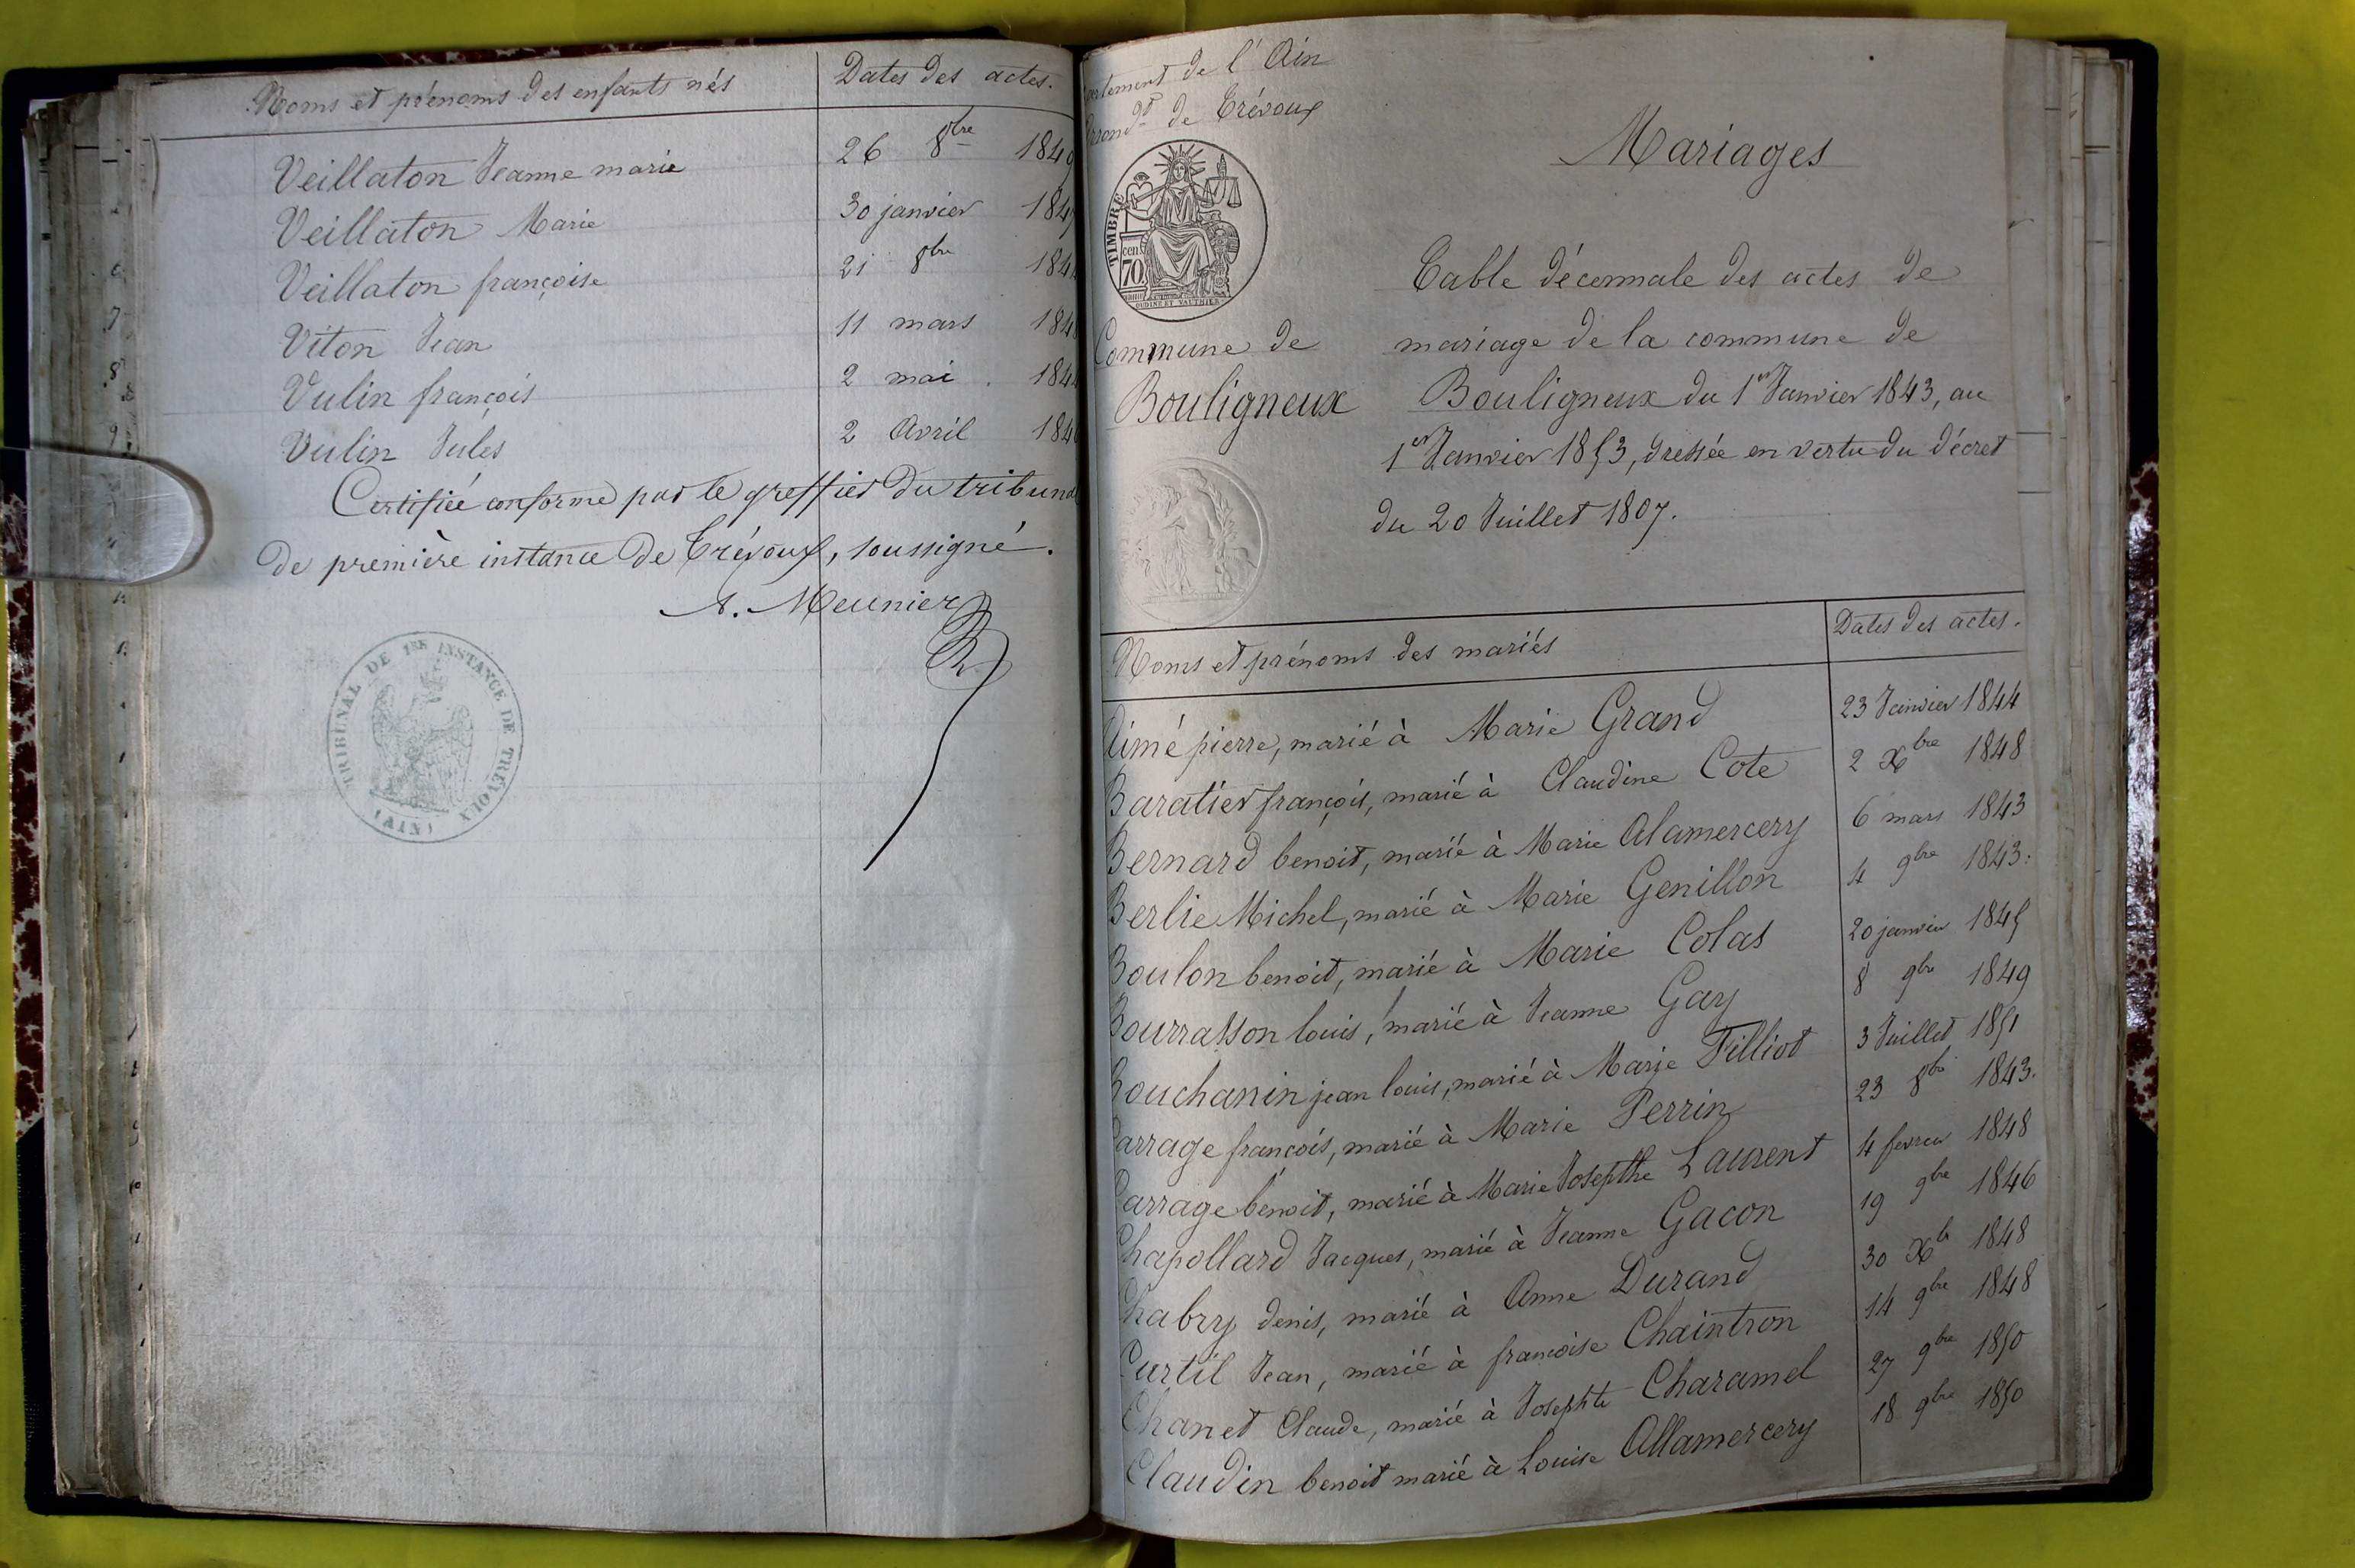 Noms et prénoms des enfants nés Dates des actes.
Veillaton Jeanne marie 26 8bre
Veillaton Marie 30 janvier
Veillaton françoise 21 8bre
Viton Jean 11 mars
Vulin françois 2 mai
Vulin Jules 2 Avril
Certifiée conforme par le greffier du tribunal
de première instance de Trévoux, soussigné.
A. Meunier
TRIBUNAL DE 1RE INSTANCE DE TRÉVOUX (AIN)
de l'Ain
de Trévoux
TIMBRE
70
cen.
OUDINÉ ET VAUTHIER
Commune de
Bouligneux
Mariages
Table décennale des actes de
mariage de la commune de
Bouligneux du 1er Janvier 1843, au
1er Janvier 1853, dressée en vertu du décret
du 20 Juillet 1807.
Noms et prénoms des mariés Dates des actes.
Aimé pierre, marié à Marie Grand 23 Janvier 1844
Baratier françois, marié à Claudine Cote 2 Xbre 1848
Bernard benoit, marié à Marie Alamercery 6 mars 1843
Berlie Michel, marié à Marie Genillon 4 9bre 1843.
Boulon benoit, marié à Marie Colas 20 janvier 1845
Bourrasson louis, marié à Jeanne Gay 8 9bre 1849
Bouchanin jean louis, marié à Marie Filliot 3 Juillet 1851
Carrage françois, marié à Marie Perrin 23 8bre 1843.
Carrage benoit, marié à Marie Josepthe Laurent 4 fevrier 1848
Chapollard Jacques, marié à Jeanne Gacon 19 9bre 1846
Chabry denis, marié à Anne Durand 30 Xbre 1848
Curtil Jean, marié à françoise Chaintron 14 9bre 1848
Chanet Claude, marié à Josephte Charamel 27 9bre 1850
Claudin benoit marié à Louise Allamercery 18 9bre 1850